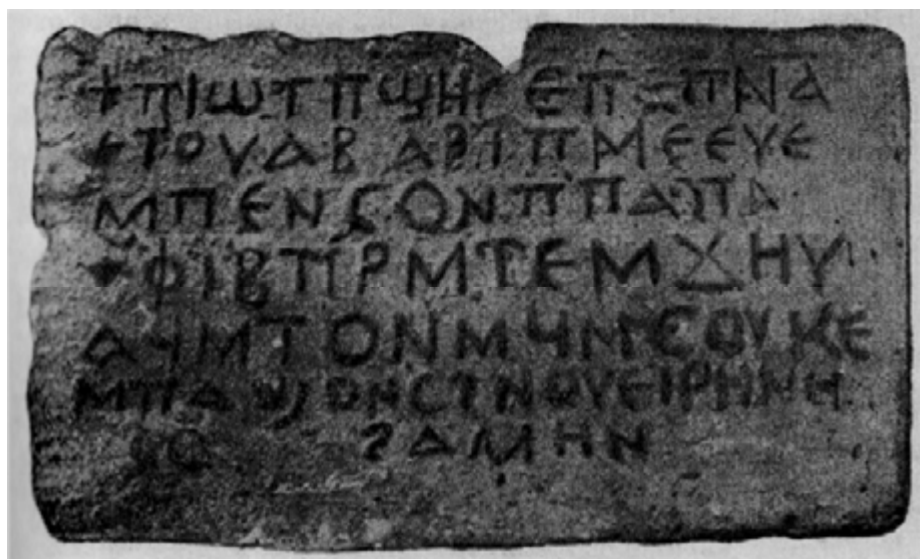 ⲡⲓⲱⲧ ⲡϣⲏⲣⲉ ⲡⲉⲡⲛⲁ
ⲉⲧⲟⲩⲁⲃ ⲁⲣⲓ ⲡⲙⲉⲉⲩⲉ
ⲙⲡⲉⲛⲥⲟⲛ ⲡⲡⲁⲡⲁ
ⲫⲓⲃ ⲡⲣⲙⲧⲉⲙϫⲏⲩ
ⲁϥⲙⲧⲟⲛ ⲙⲙⲟϥ ⲛⲥⲟⲩ ⲕⲉ
ⲙⲡⲁϣⲟⲛⲥ ϩⲛ ⲟⲩⲉⲓⲣⲏⲛⲏ
ϩⲁⲙⲏⲛ